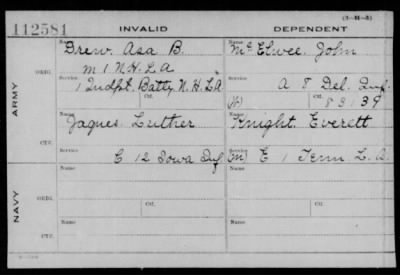 (3-M-3)
112581 INVALID DEPENDENT
ARMY
ORIG.
Name Drew Asa B. Name McElwee John
M 1 N.H.L.A
Service Service A 8 Del. Inf.
1 Indpt. Batty N.H.L.A Ctf. (W) Ctf. 83139
CTF.
Name Jaques Luther Name Knight Everett
Service C 12 Iowa Inf. Service (M) E 1 Tenn L.A.
NAVY
ORIG.
Name Ctf. Name Ctf.
Service Service
CTF.
Name Name